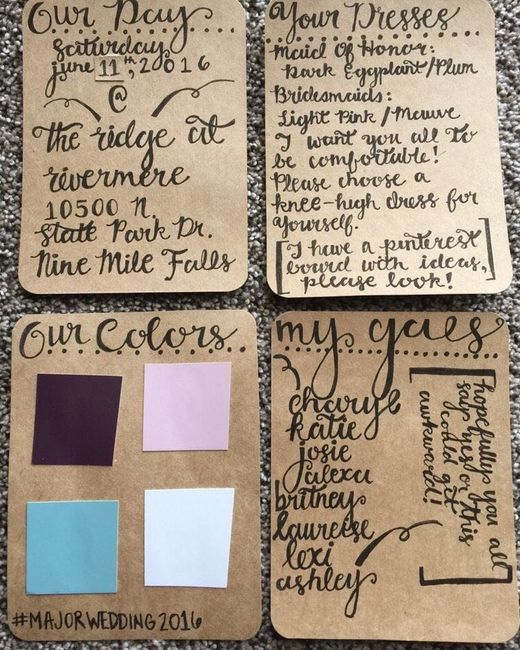 Our Day
saturday,
june 11th, 2016
@
the ridge at
rivermere
10500 N.
State Park Dr.
Nine Mile Falls
Your Dresses
Maid Of Honor:
Dark Eggplant/Plum
Bridesmaids:
Light Pink/Mauve
I want you all to
be comfortable!
Please choose a
knee-high dress for
yourself.
[I have a pinterest
board with ideas,
please look!]
Our Colors
#MAJORWEDDING2016
my gals
charyl
katie
josie
alexa
britney
laureese
lexi
ashley
[hopefully you all
say yes or this
could get
awkward!]